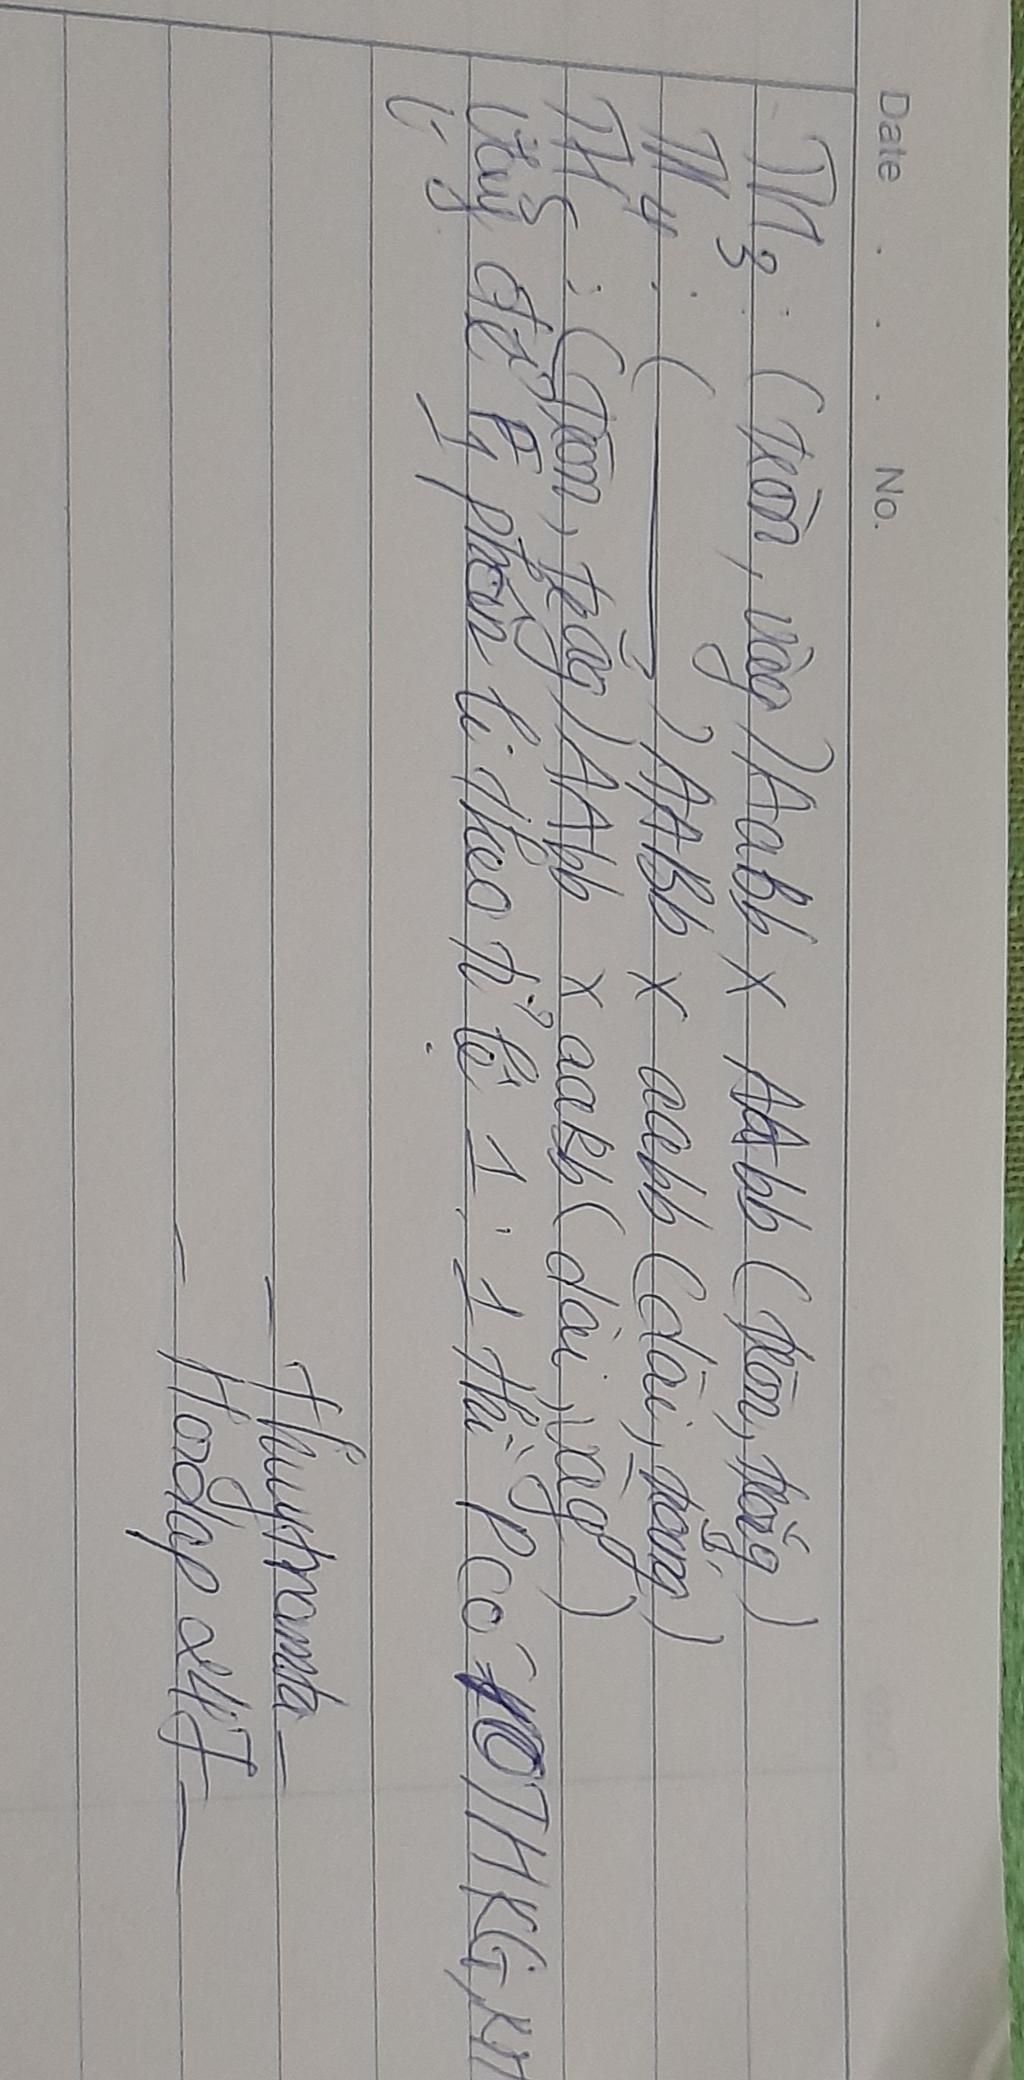 Date . . . . No.
TH3: (tròn, vàng) AaBb x AAbb (tròn, trắng)
TH4: (———) AABb x aabb (dài, trắng)
TH5: (Tròn, trắng) AAbb x aaBb (dài, vàng)
Vậy để F1 phân li theo tỉ lệ 1 : 1 thì P có 10 TH KG, KH
- Thuytramta -
- Hoidap 247 -